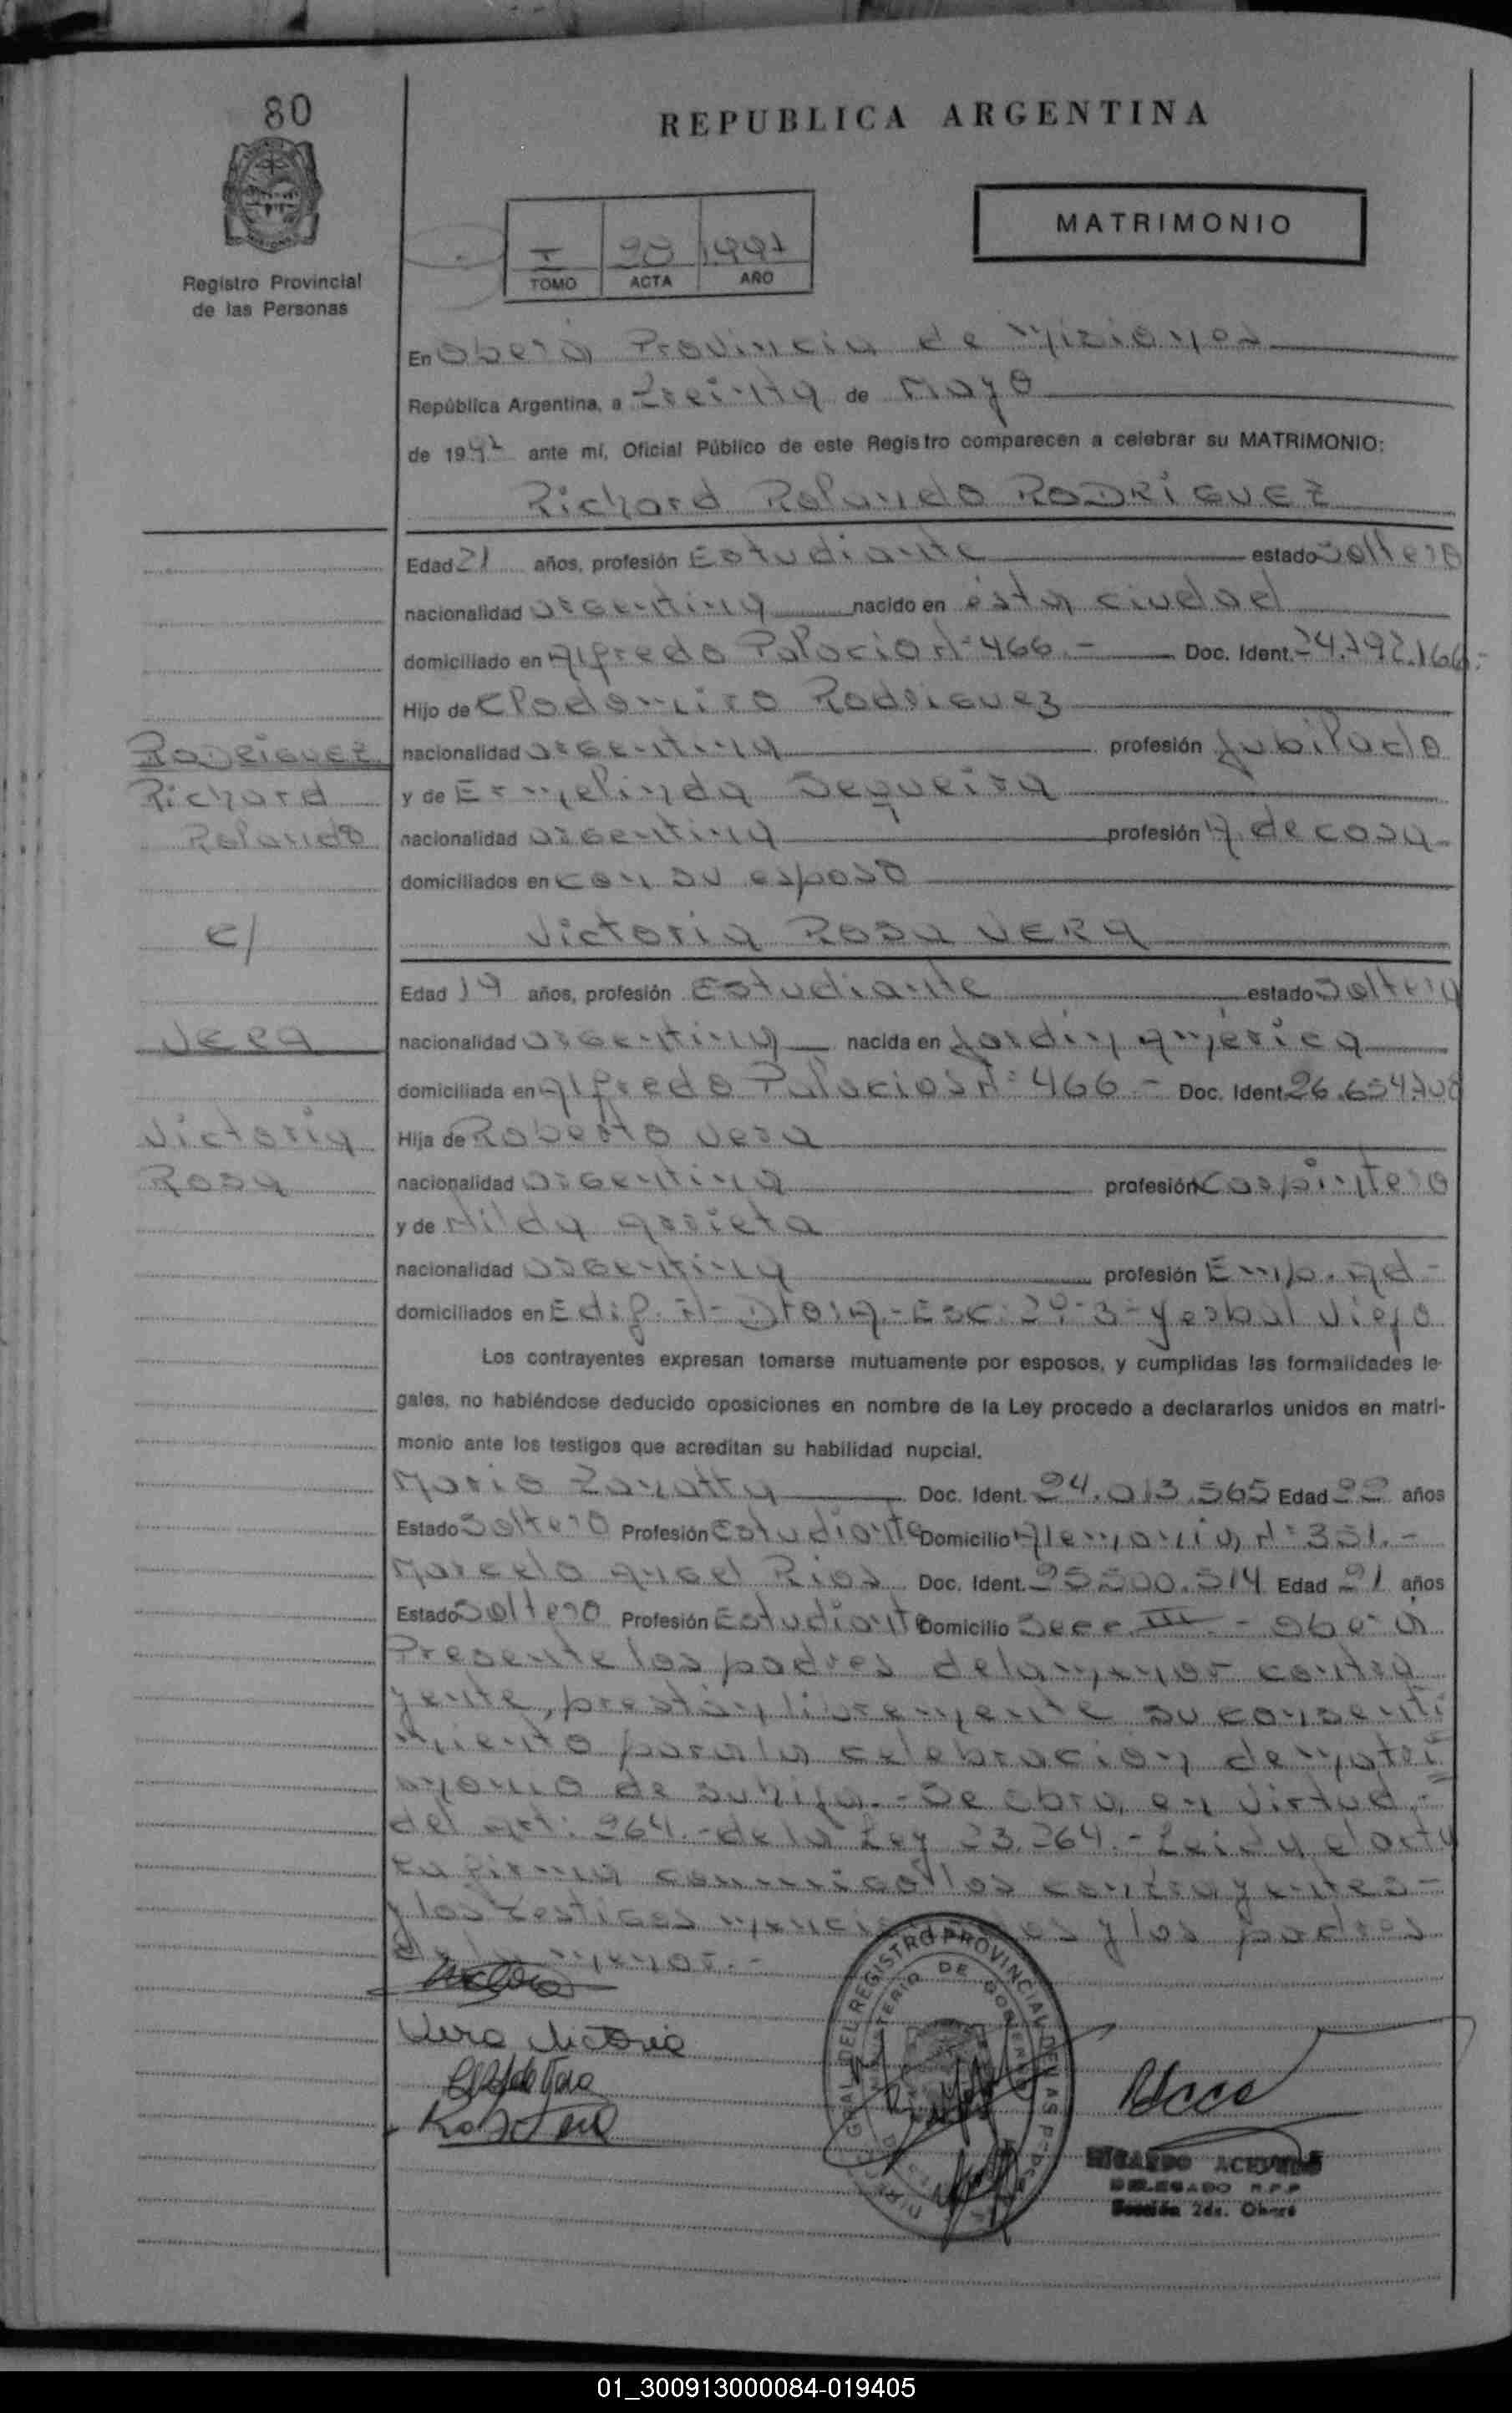 80
REPUBLICA ARGENTINA
MATRIMONIO
Registro Provincial
de las Personas
I
TOMO ACTA AÑO
En Oberá Provincia de Misiones
República Argentina, a Treinta de Mayo
de 199 ante mí, Oficial Público de este Registro comparecen a celebrar su MATRIMONIO:
Richard Rolando RODRIGUEZ
Edad 21 años, profesión Estudiante estado Soltero
nacionalidad argentina nacido en ésta ciudad
domiciliado en Alfredo Palacio Nº 466.- Doc. Ident. 24.792.166.-
Hijo de Clodomiro Rodriguez
nacionalidad argentina profesión Jubilado
y de Ermelinda Sequeira
nacionalidad argentina profesión A. de casa-
domiciliados en con su esposo
Rodriguez
Richard
Rolando
c/
Vera
Victoria
Rosa
Victoria Rosa VERA
Edad 19 años, profesión Estudiante estado Soltera
nacionalidad argentina nacida en Jardín américa
domiciliada en Alfredo Palacios Nº 466 - Doc. Ident. 26.654.708
Hija de Roberto Vera
nacionalidad argentina profesión Carpintero
y de Hilda arrieta
nacionalidad argentina profesión Emp. ad-
domiciliados en Edif. - Yerbal Viejo
Los contrayentes expresan tomarse mutuamente por esposos, y cumplidas las formalidades le-
gales, no habiéndose deducido oposiciones en nombre de la Ley procedo a declararlos unidos en matri-
monio ante los testigos que acreditan su habilidad nupcial.
Mario Doc. Ident. 24.013.565 Edad 22 años
Estado Soltero Profesión Estudiante Domicilio Alemania Nº 351.-
Marcelo Rios Doc. Ident. 25.500.514 Edad 21 años
Estado Soltero Profesión Estudiante Domicilio Secc. III - Oberá
Presente los padres de la menor contra
yente, prestan libremente su consenti
miento para la celebracion de matri
monio de su hija.- Se obra en virtud,-
del art: 264.- de la Ley 23.264.- Leida el acta
la firma conmigo los contrayentes-
y los testigos mencionados y los padres
de la menor.-
Vera Victoria
DEL REGISTRO PROVINCIAL DE LAS
MINISTERIO DE GOBIERNO
RICARDO ACEVEDO
DELEGADO R.P.P
Sección 2da. Oberá
01_300913000084-019405